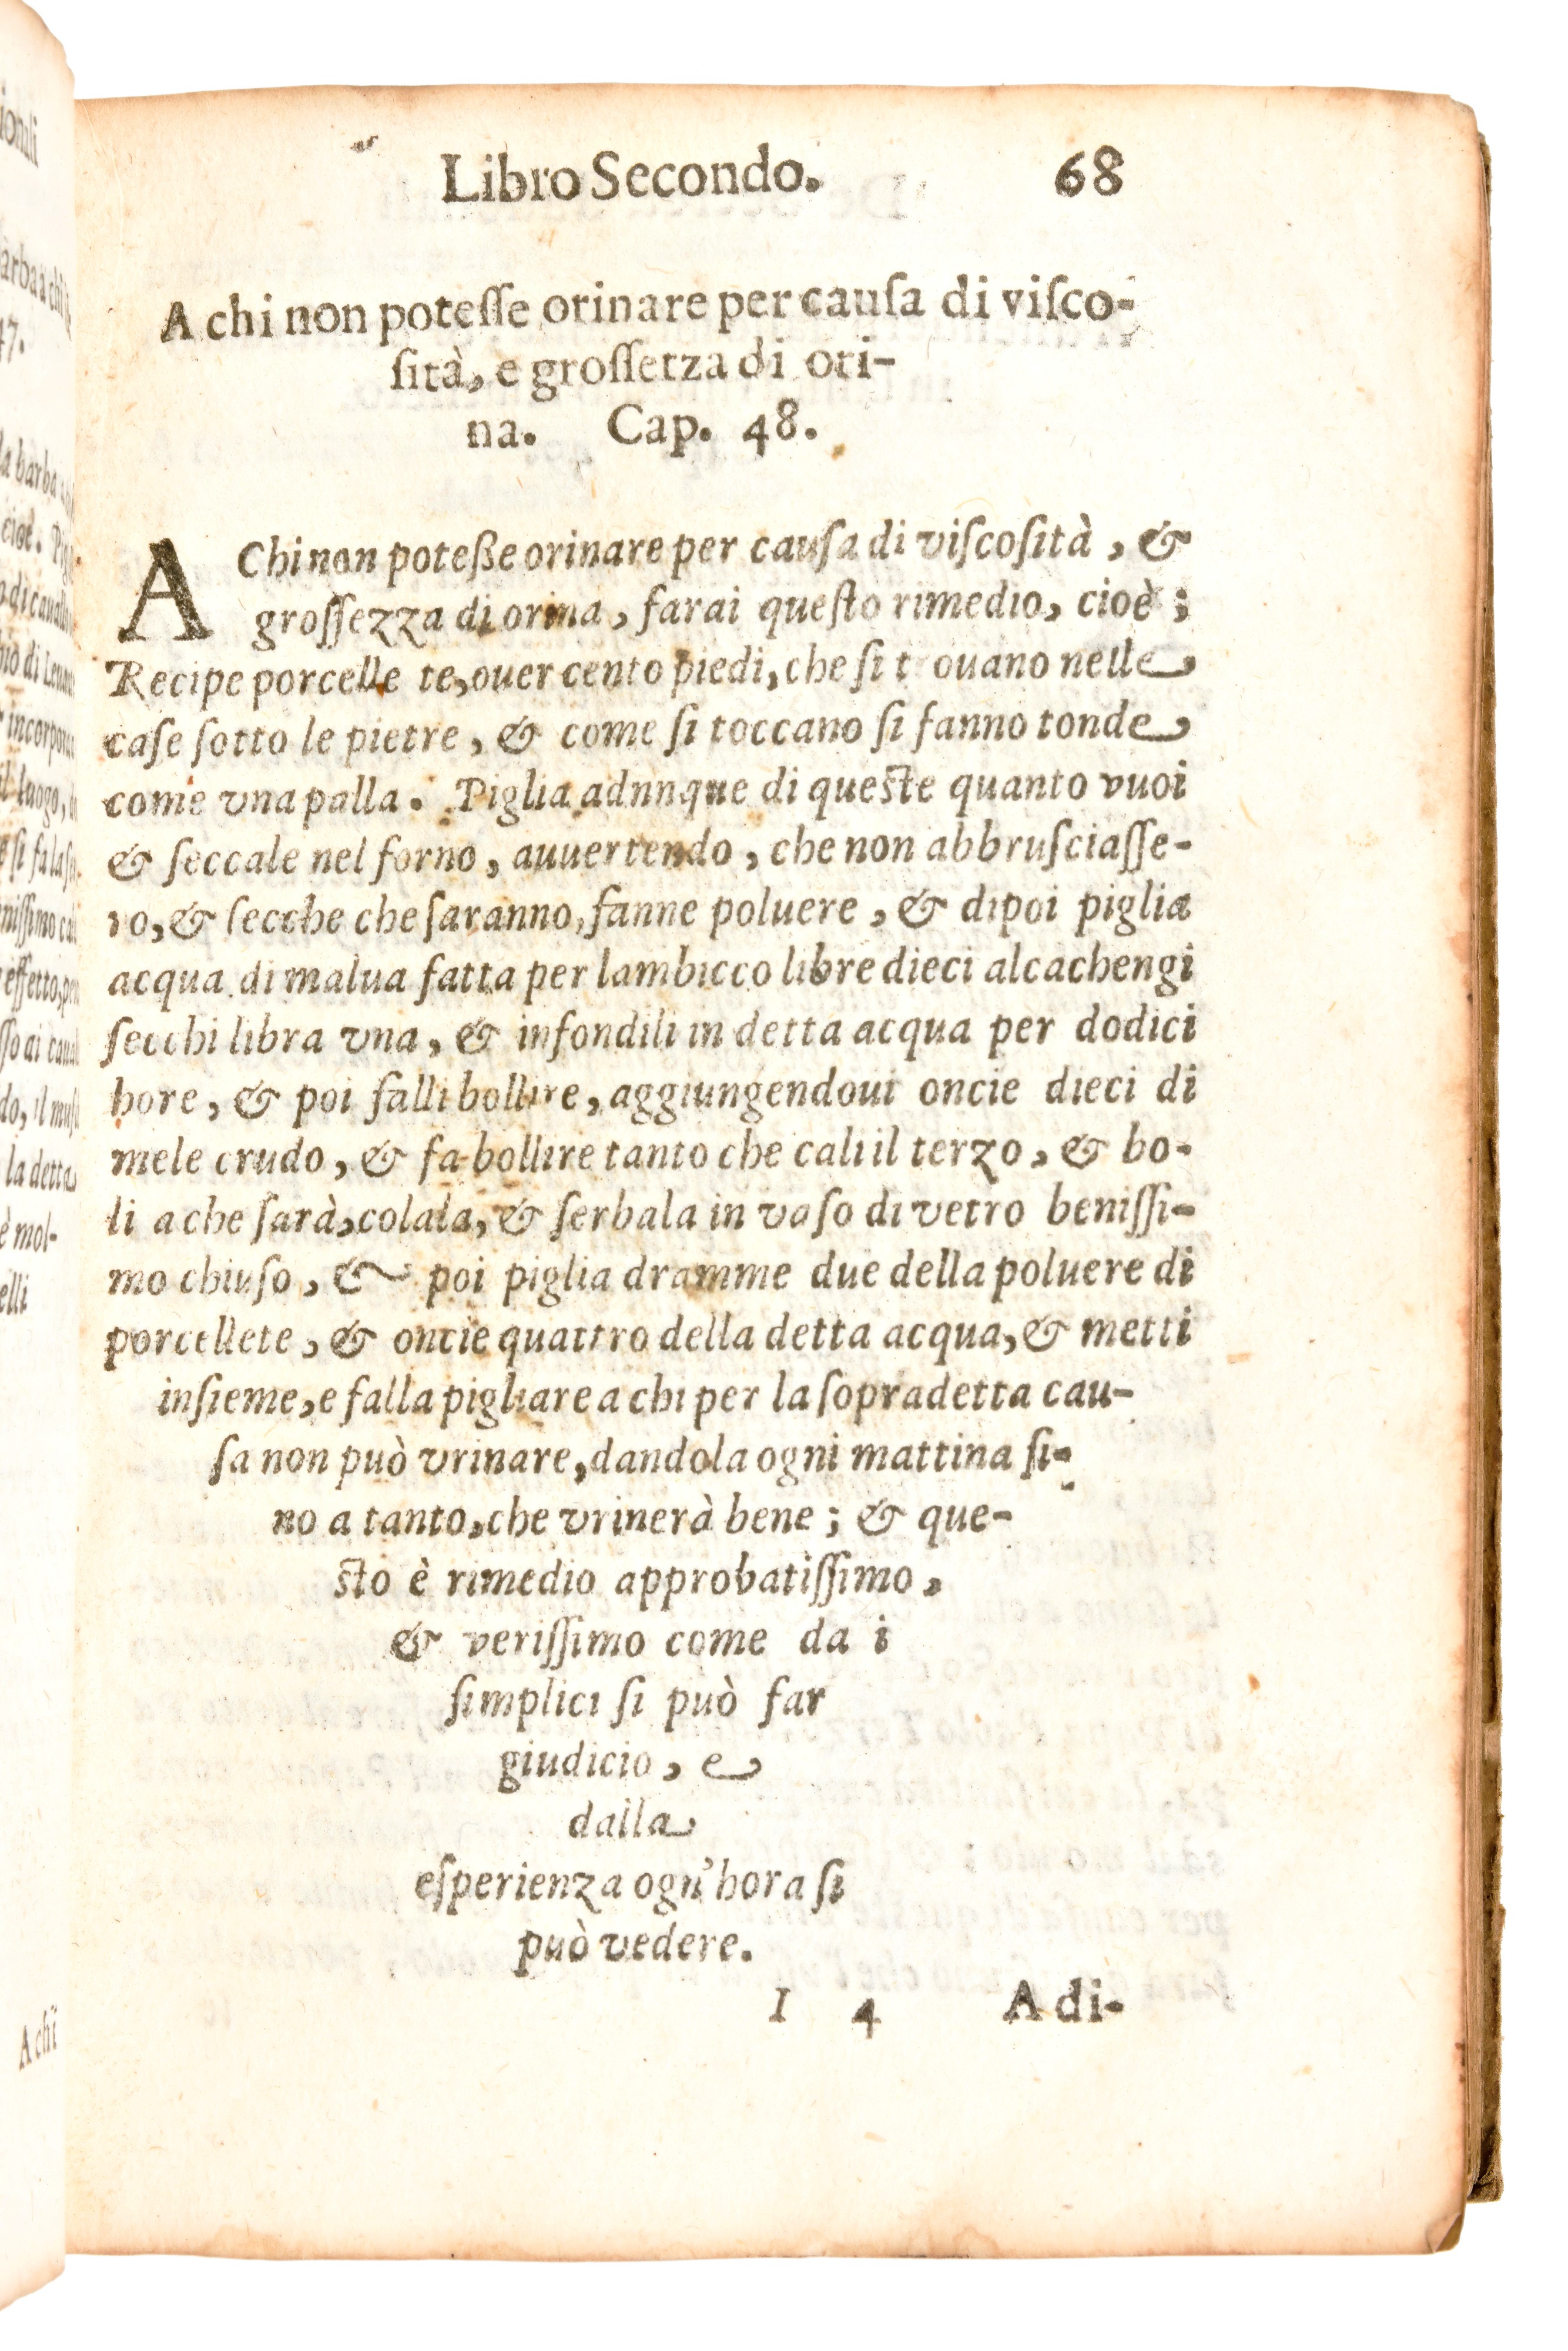 Libro Secondo. 68
A chi non poteſſe orinare per cauſa di viſco-
ſità, e groſſetza di ori-
na. Cap. 48.
A Chi non poteße orinare per cauſa di viſcoſità, &
groſſezza di orina, farai queſto rimedio, cioè;
Recipe porcelle te, ouer cento piedi, che ſi t ouano nelle
caſe ſotto le pietre, & come ſi toccano ſi fanno tonde
come vna palla. Piglia adnnque di queſte quanto vuoi
& ſeccale nel forno, auuertendo, che non abbruſciaſſe-
ro, & ſecche che ſaranno, fanne poluere, & dipoi piglia
acqua di malua fatta per lambicco libre dieci alcachengi
ſecchi libra vna, & infondili in detta acqua per dodici
hore, & poi falli bollire, aggiungendoui oncie dieci di
mele crudo, & fa bollire tanto che cali il terzo, & bo-
li a che ſarà, colala, & ſerbala in vaſo di vetro beniſſi-
mo chiuſo, & poi piglia dramme due della poluere di
porcellete, & oncie quattro della detta acqua, & metti
inſieme, e falla pigliare a chi per la ſopradetta cau-
ſa non può vrinare, dandola ogni mattina ſi-
no a tanto, che vrinerà bene; & que-
ſto è rimedio approbatiſſimo,
& veriſſimo come da i
ſimplici ſi può far
giudicio, e
dalla
eſperienza ogn'hora ſi
può vedere.
I 4 A di-